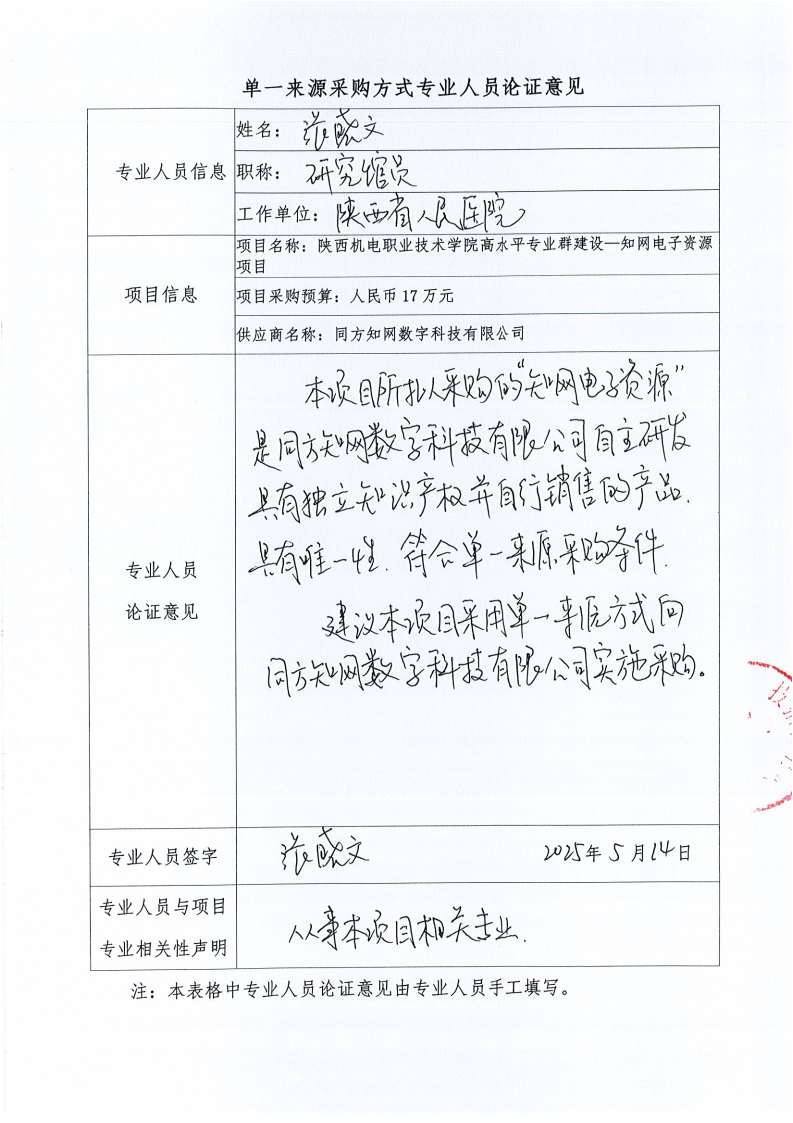 单一来源采购方式专业人员论证意见
专业人员信息
姓名：张晓文
职称：研究馆员
工作单位：陕西省人民医院
项目信息
项目名称：陕西机电职业技术学院高水平专业群建设—知网电子资源
项目
项目采购预算：人民币 17 万元
供应商名称：同方知网数字科技有限公司
专业人员
论证意见
本项目所拟采购的“知网电子资源”
是同方知网数字科技有限公司自主研发
具有独立知识产权并自行销售的产品.
具有唯一性.符合单一来源采购条件.
建议本项目采用单一来源方式向
同方知网数字科技有限公司实施采购。
专业人员签字
张晓文 2025年 5 月 14 日
专业人员与项目
专业相关性声明
从事本项目相关专业.
注：本表格中专业人员论证意见由专业人员手工填写。